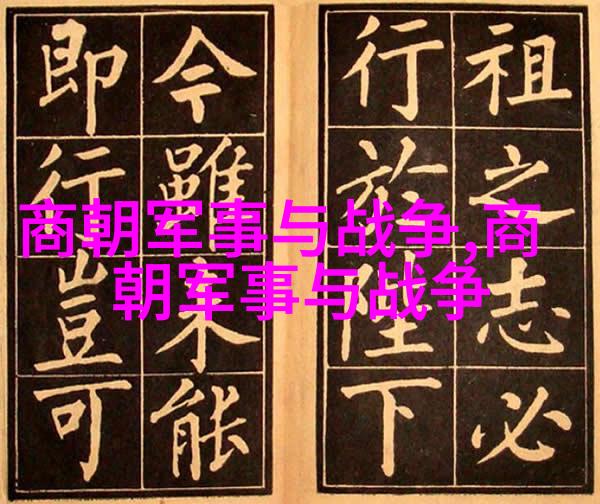 祖之志必
行於陛下
今雖未能
即行豈可
商朝军事与战争,商
朝军事与战争